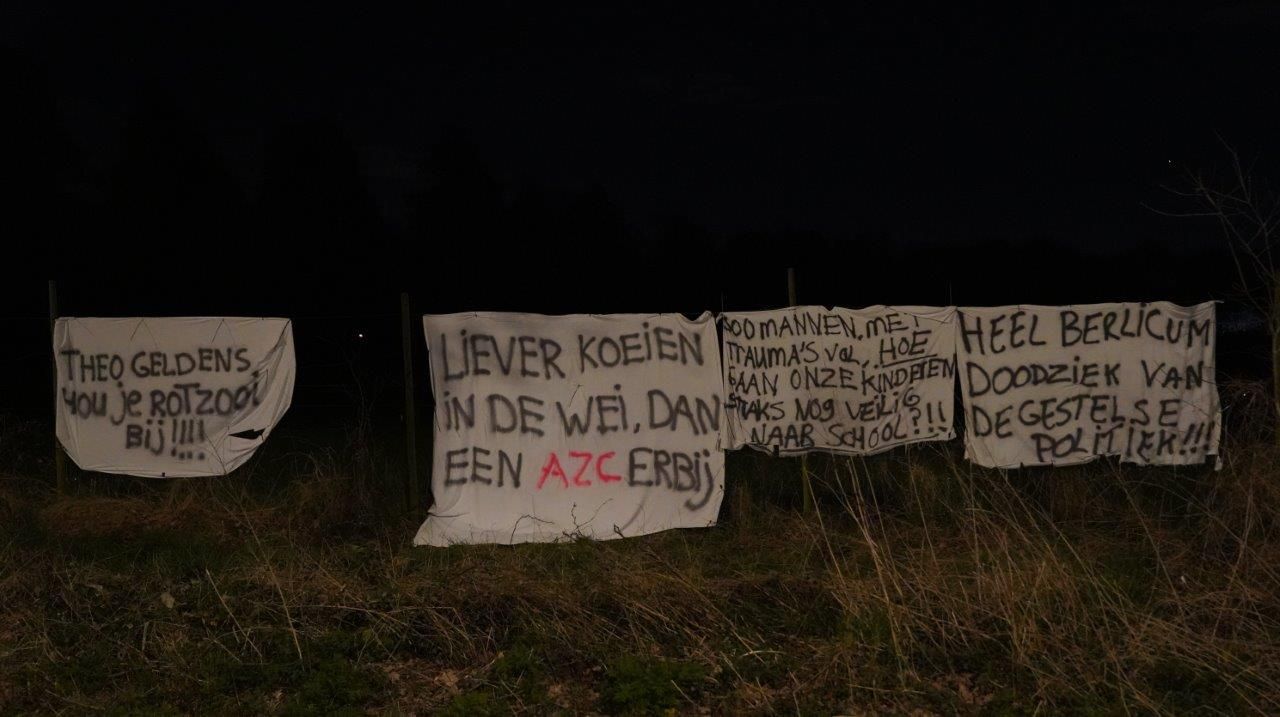 THEO GELDENS,
HOU je ROTZOOI
BIJ!!!!
LIEVER KOEIEN
IN DE WEI, DAN
EEN AZC ERBIJ
MANNEN, MET
TRAUMA'S VOL, HOE
GAAN ONZE KINDEREN
STRAKS NOG VEILIG
NAAR SCHOOL?!!
HEEL BERLICUM
DOODZIEK VAN
DE GESTELSE
POLITIEK!!!